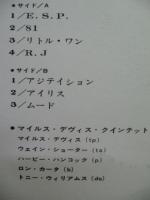 ●サイド/A
1/E.S.P.
2/81
3/リトル・ワン
4/R.J
●サイド/B
1/アジテイション
2/アイリス
3/ムード
●マイルス・デヴィス・クインテット
マイルス・デヴィス(tp)
ウェイン・ショーター(ts)
ハービー・ハンコック(p)
ロン・カータ(b)
トニー・ウィリアムス(ds)